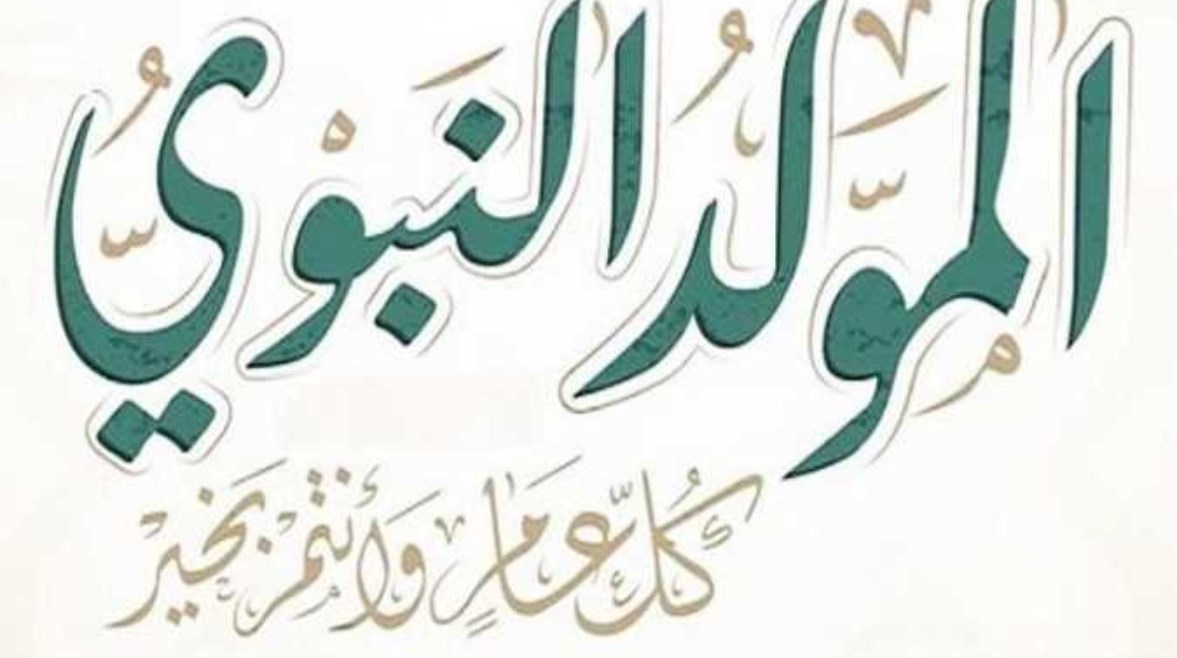 المَوْلِدُ النَّبَوْيُّ
كُلُّ عَامٍ وَأَنْتُمْ بِخَيْرْ